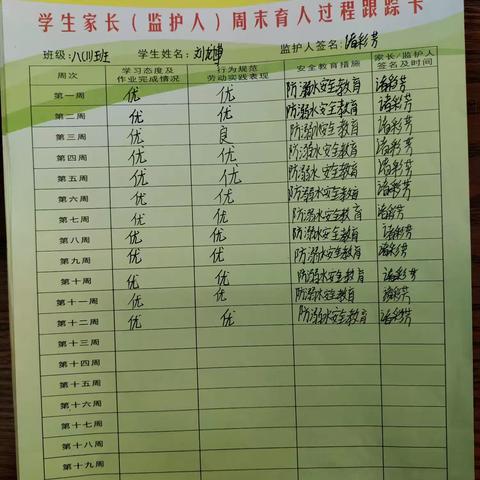 学生家长（监护人）周末育人过程跟踪卡
班级:八(1)班 学生姓名: 刘 监护人签名:诸彩芳
周次 学习态度及作业完成情况 行为规范劳动实践表现 安全教育措施 家长/监护人签名及时间
第一周 优 优 防溺水安全教育 诸彩芳
第二周 优 优 防溺水安全教育 诸彩芳
第三周 优 良 防溺水安全教育 诸彩芳
第四周 优 优 防溺水安全教育 诸彩芳
第五周 优 优 防溺水安全教育 诸彩芳
第六周 优 优 防溺水安全教育 诸彩芳
第七周 优 优 防溺水安全教育 诸彩芳
第八周 优 优 防溺水安全教育 诸彩芳
第九周 优 优 防溺水安全教育 诸彩芳
第十周 优 优 防溺水安全教育 诸彩芳
第十一周 优 优 防溺水安全教育 诸彩芳
第十二周 优 优 防溺水安全教育 诸彩芳
第十三周
第十四周
第十五周
第十六周
第十七周
第十八周
第十九周